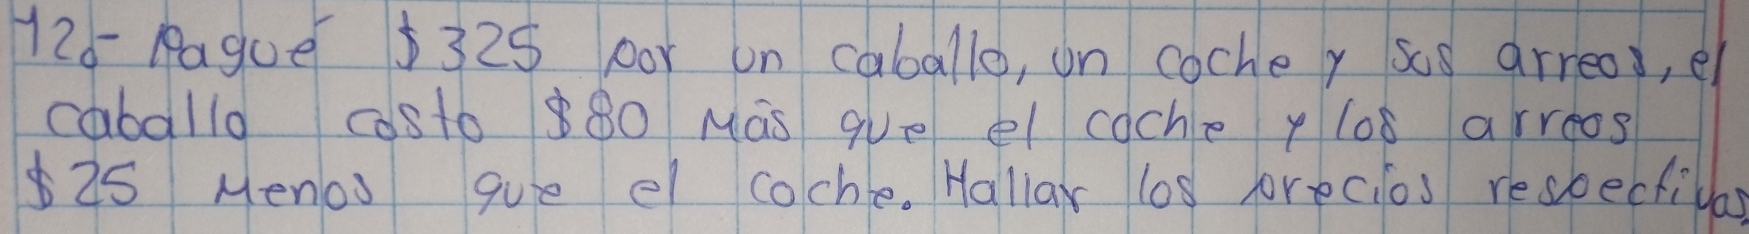 12.- Pagué $325 por un caballo, un coche y sus arreos, el
caballo costo $80 más que el coche y los arreos
$25 menos que el coche. Hallar los precios respectivos.